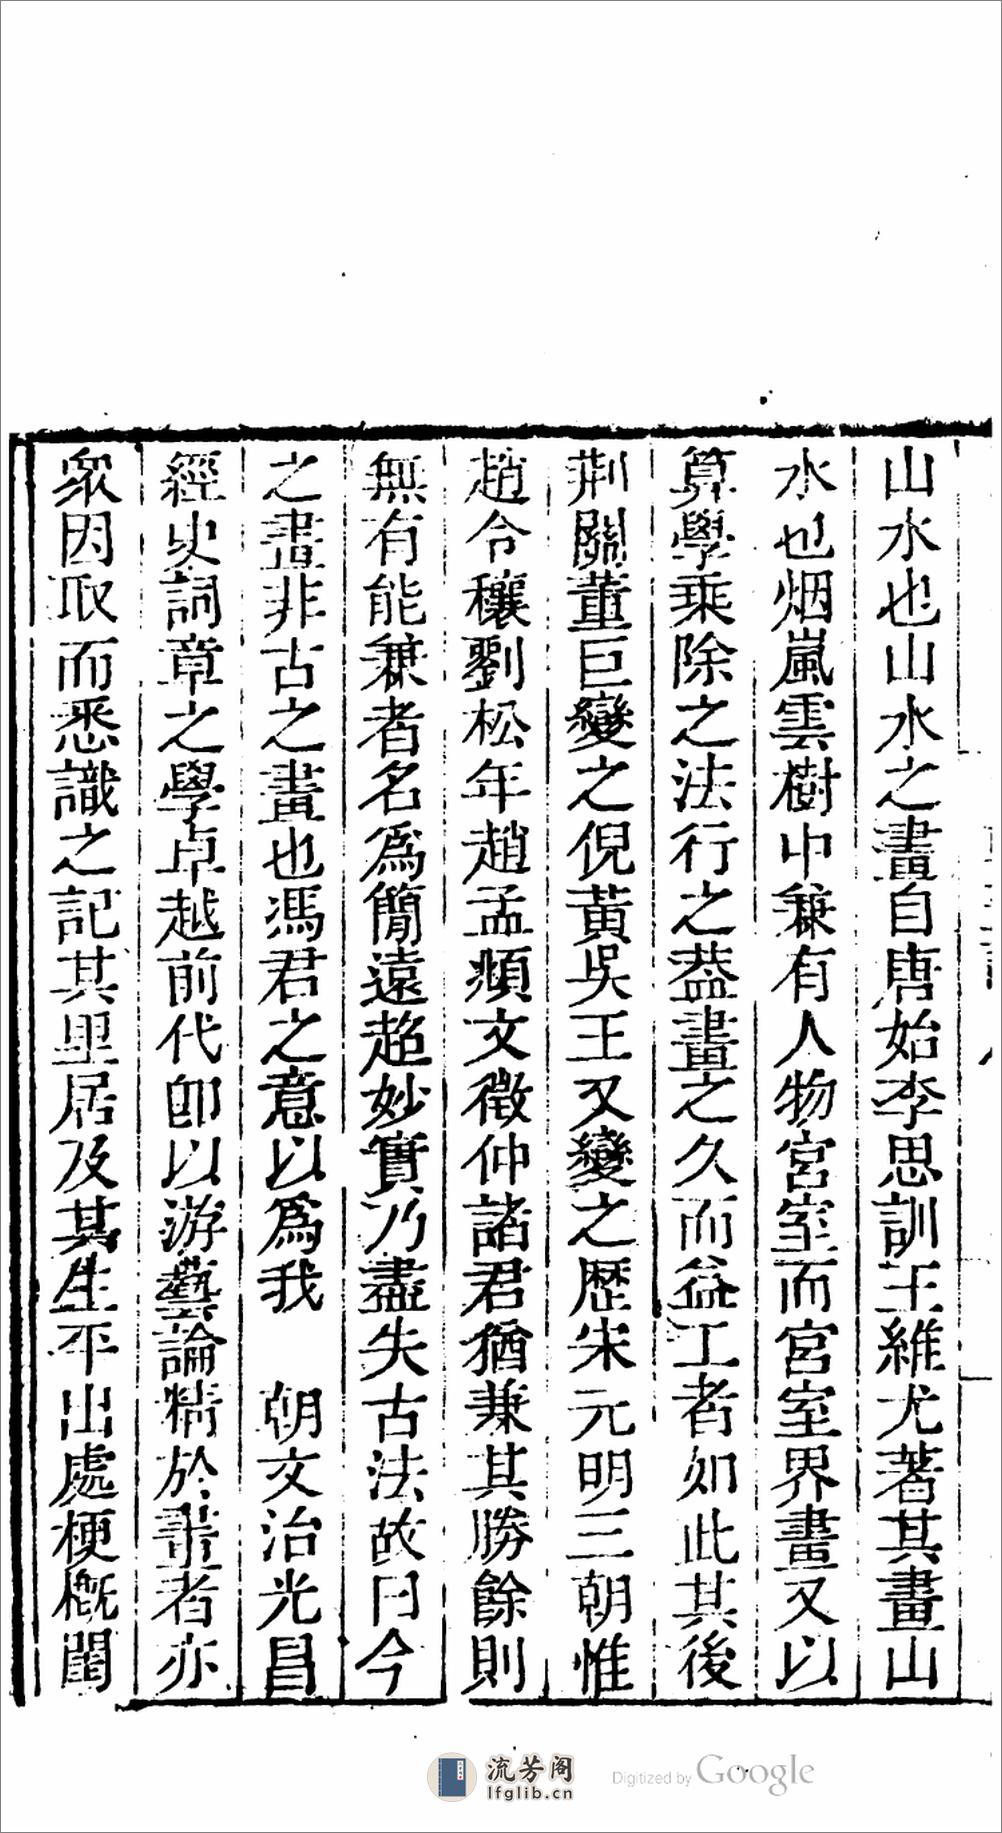 山水也山水之畫自唐始李思訓王維尤著其畫山
水也烟嵐雲樹中兼有人物宮室而宮室界畫又以
算學乘除之法行之葢畫之久而益工者如此其後
荆關董巨變之倪黃吳王又變之歷宋元明三朝惟
趙令穰劉松年趙孟頫文徵仲諸君猶兼其勝餘則
無有能兼者名爲簡遠超妙實乃盡失古法故曰今
之畫非古之畫也馮君之意以爲我　朝文治光昌
經史詞章之學卓越前代卽以游藝論精於畫者亦
衆因取而悉識之記其里居及其生平出處梗槪閨
流芳阁
lfglib.cn
Digitized by Google